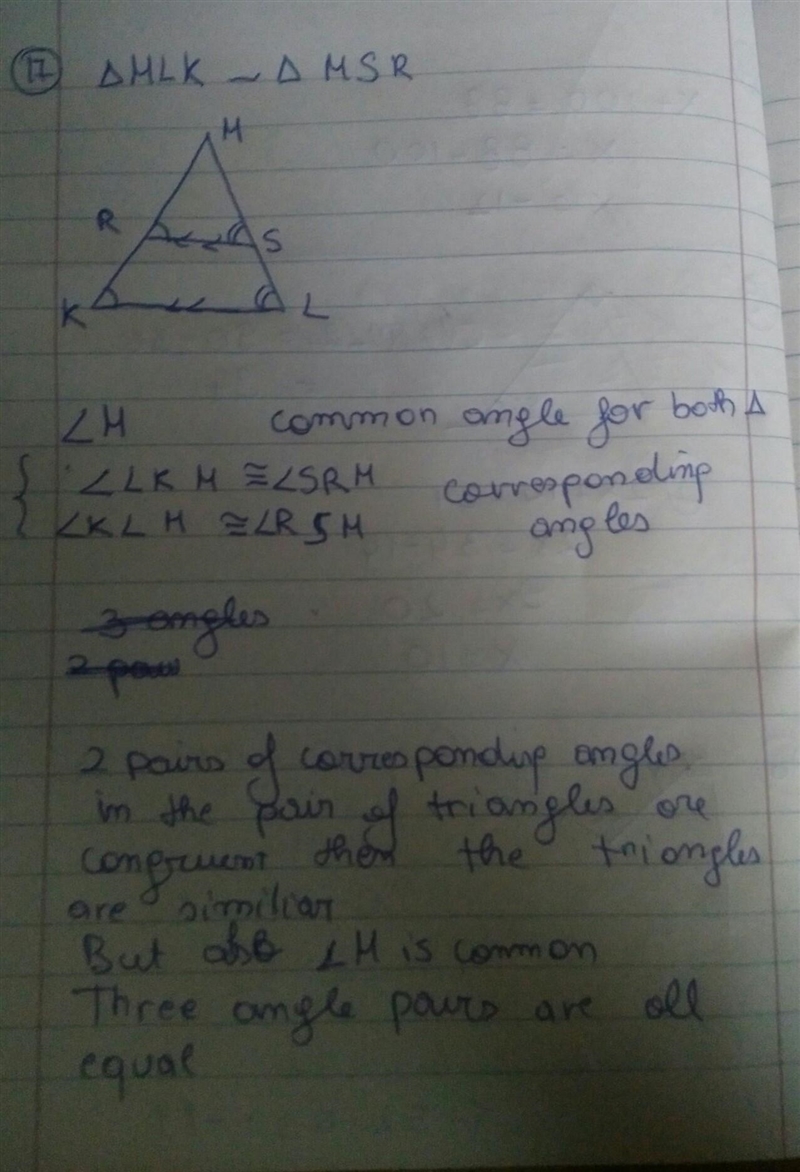 17 ΔMLK ~ Δ MSR
M
R
S
K
L
∠M common angle for both Δ
∠LKM ≅∠SRM corresponding
∠KLM ≅∠RSM angles
3 angles
2 pair
2 pairs of corresponding angles
in the pair of triangles are
congruent then the triangles
are similiar
But also ∠M is common
Three angle pairs are all
equal